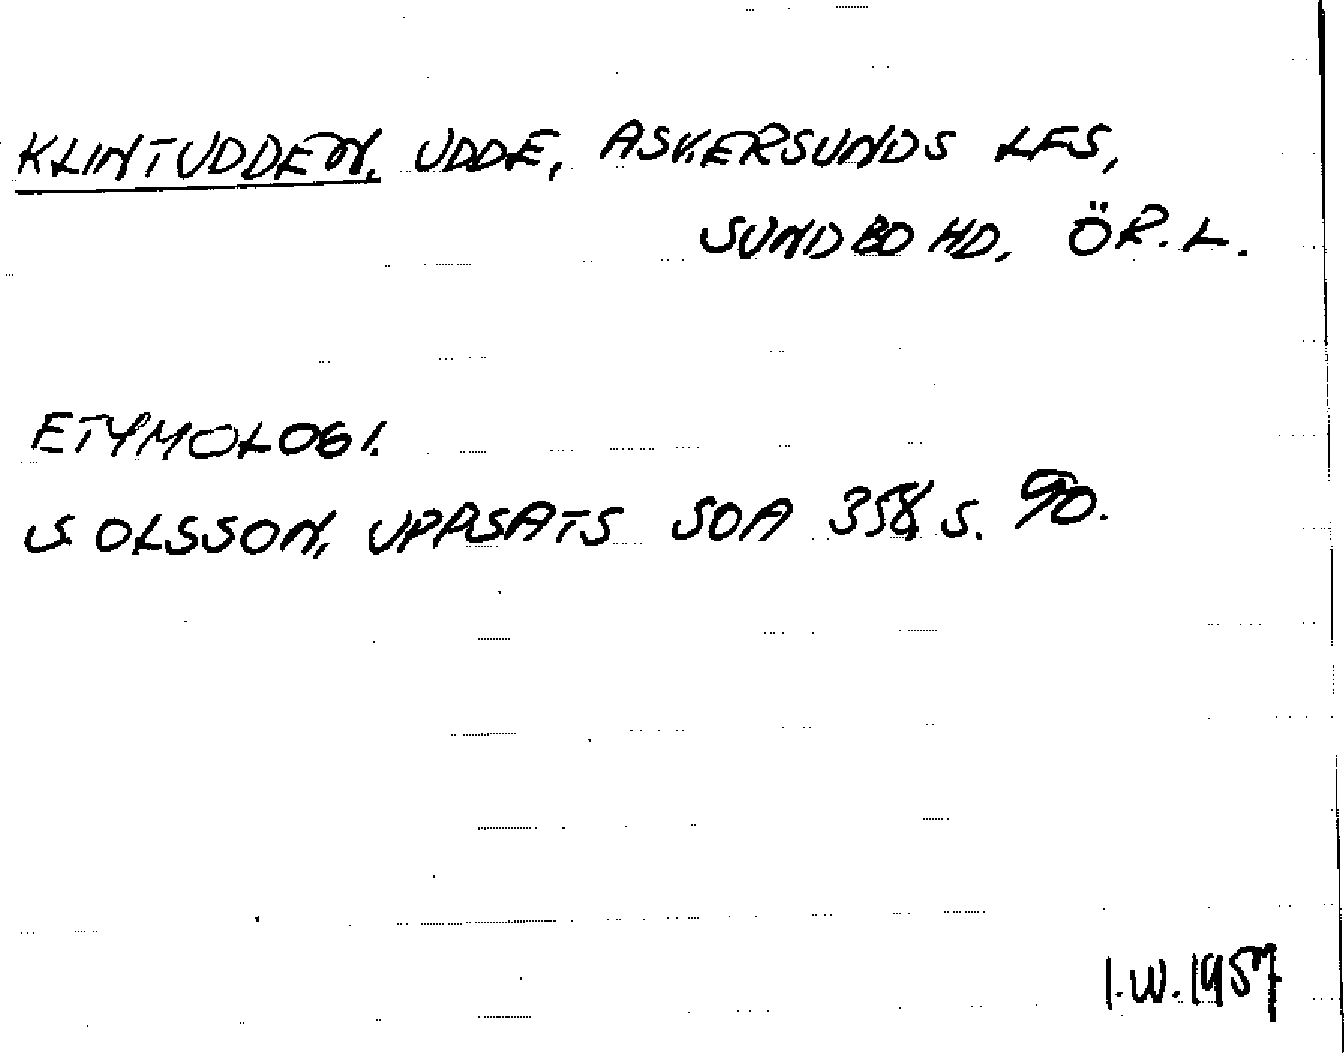 KLINTUDDEN, UDDE, ASKERSUNDS LFS,
SUNDBO HD, ÖR.L.
ETYMOLOGI.
S OLSSON, UPPSATS SOA 358 S. 90.
I.W. 1957